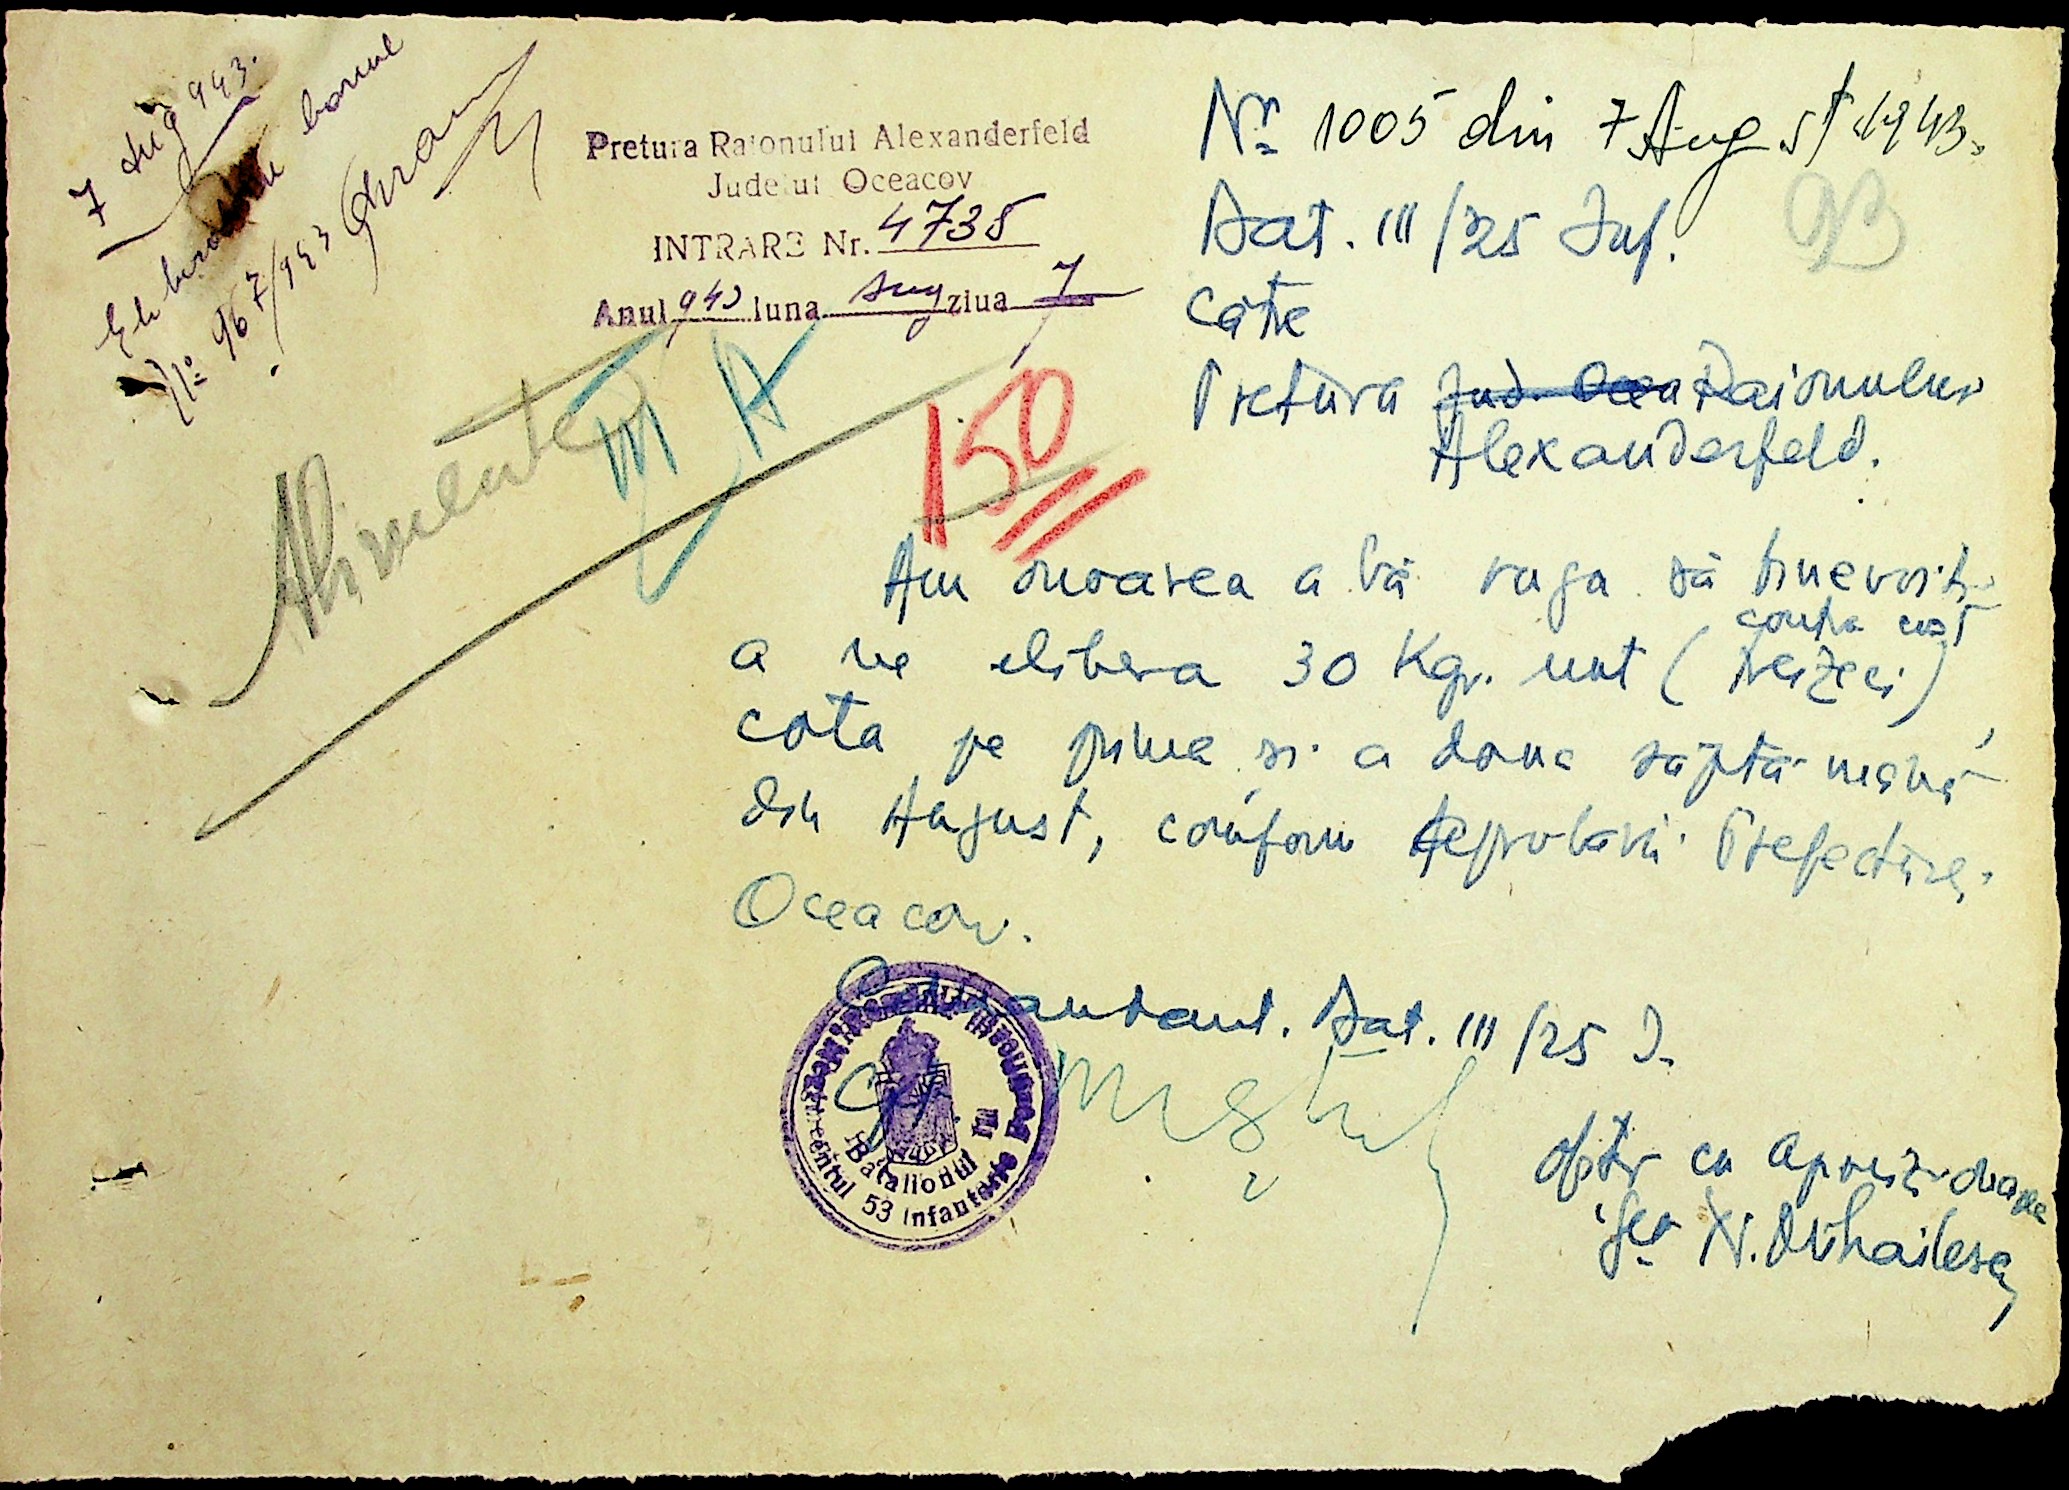 7 Aug 943.
Eliberat bonul
No 967/943
Pretura Raionului Alexanderfeld
Judeţul Oceacov
INTRARE Nr. 4735
Anul 943 luna Aug ziua 7
Alimente
150
Nr. 1005 din 7 August 1943.
93
Bat. III/25 Inf.
Către
Pretura Jud. Ocea Raionului
Alexanderfeld.
Am onoarea a Vă ruga să binevoiți
contra cost
a ne elibera 30 Kgr. unt (treizeci)
cota pe prima și a doua săptămână
din August, conform Aprobării Prefecturei
Oceacov.
Comandant. Bat. III/25 I.
Regimentul 53 Infanterie
Batalionul III
ofițer cu aprovizionarea
N. Mihailescu